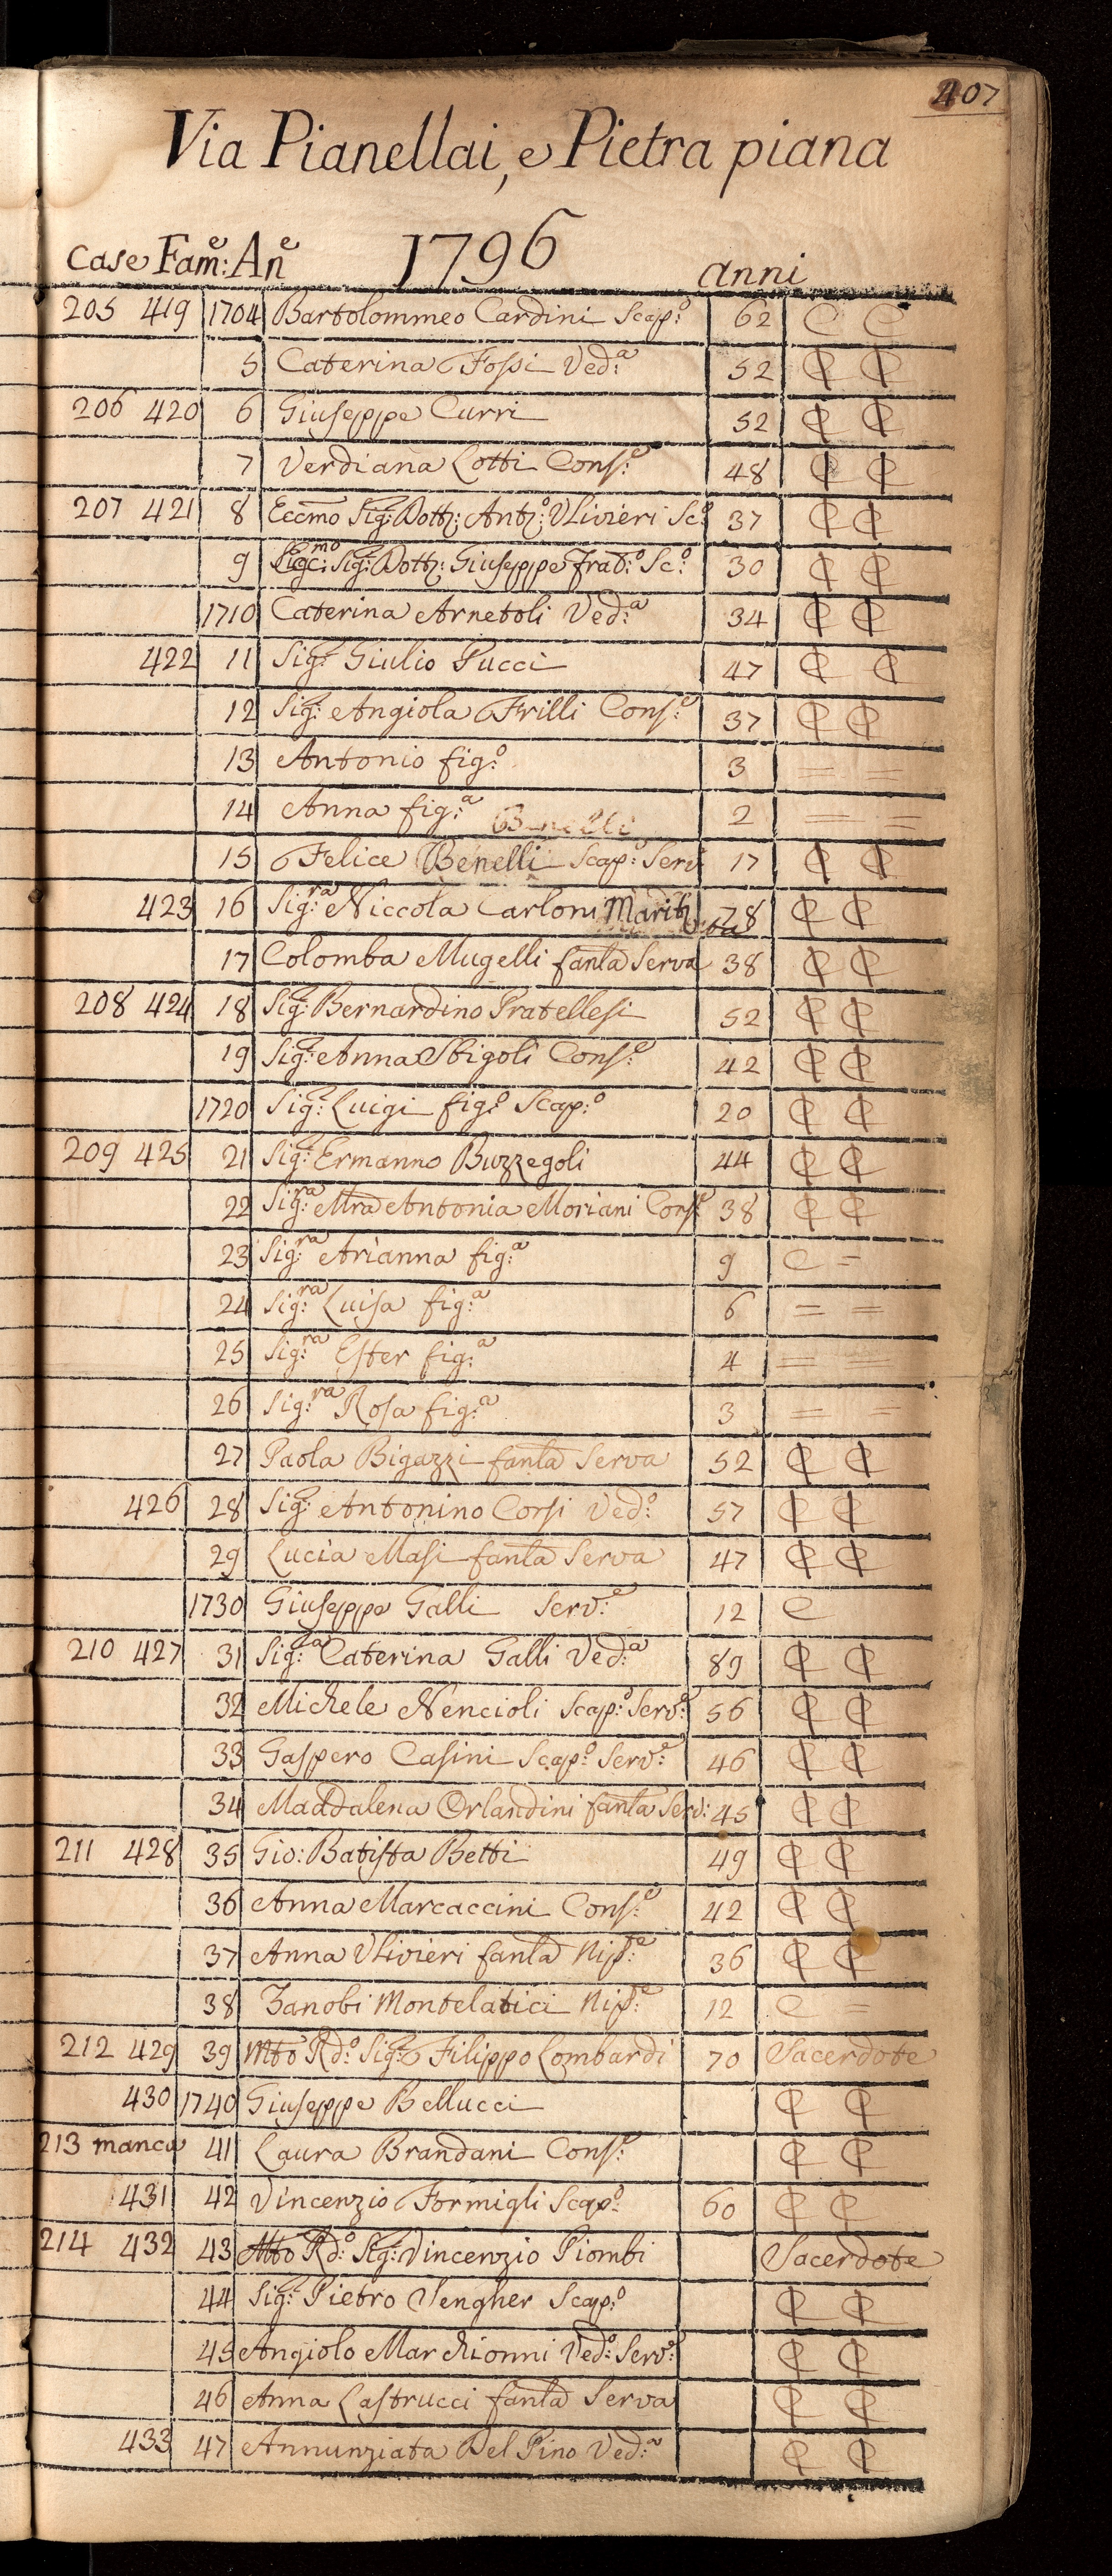 407
Via Pianellai, e Pietra piana
1796
Case Fam:e An:e anni
205 419 1704 Bartolommeo Cardini Scap:o 62 C C
5 Caterina Fossi Ved:a 52 ₵ ₵
206 420 6 Giuseppe Curri 52 ₵ ₵
7 Verdiana Lotti Cons:e 48 ₵ ₵
207 421 8 Eccmo Sig:r Dott:r Ant:o Ulivieri Sc:o 37 ₵ ₵
9 Sig:r Dott:r Giuseppe frat:o Sc:o 30 ₵ ₵
1710 Caterina Arnetoli Ved:a 34 ₵ ₵
422 11 Sig:r Giulio Pucci 47 ₵ ₵
12 Sig: Angiola Frilli Cons:e 37 ₵ ₵
13 Antonio fig:o 3 = =
14 Anna fig:a 2 = =
15 Felice Benelli Scap:o Serv 17 ₵ ₵
423 16 Sig:ra Niccola Carloni Marit:ta 78 ₵ ₵
17 Colomba Mugelli fanla Serva 38 ₵ ₵
208 424 18 Sig:r Bernardino Pratellesi 52 ₵ ₵
19 Sig: Anna Sbigoli Cons:e 42 ₵ ₵
1720 Sig:r Luigi fig:o Scap:o 20 ₵ ₵
209 425 21 Sig:r Ermanno Buzzegoli 44 ₵ ₵
22 Sig:ra Mra Antonia Moriani Cons:e 38 ₵ ₵
23 Sig:ra Arianna fig:a 9 C =
24 Sig:ra Luisa fig:a 6 = =
25 Sig:ra Ester fig:a 4 = =
26 Sig:ra Rosa fig:a 3 = =
27 Paola Bigazzi fanla Serva 52 ₵ ₵
426 28 Sig:r Antonino Corsi Ved:o 57 ₵ ₵
29 Lucia Masi fanla Serva 47 ₵ ₵
1730 Giuseppe Galli Serv:e 12 C
210 427 31 Sig:ra Caterina Galli Ved:a 89 ₵ ₵
32 Michele Nencioli Scap:o Serv:e 56 ₵ ₵
33 Gaspero Casini Scap:o Serv:e 46 ₵ ₵
34 Maddalena Orlandini fanla Serv: 45 ₵ ₵
211 428 35 Gio: Batista Betti 49 ₵ ₵
36 Anna Marcaccini Cons:e 42 ₵ ₵
37 Anna Ulivieri fanla Nip:e 36 ₵ ₵
38 Zanobi Montelatici Nip:e 12 C =
212 429 39 Mto Rd:o Sig:r Filippo Lombardi 70 Sacerdote
430 1740 Giuseppe Bellucci ₵ ₵
213 manca 41 Laura Brandani Cons:e ₵ ₵
431 42 Vincenzio Formigli Scap:o 60 ₵ ₵
214 432 43 Mto Rd:o Sig:r Vincenzio Piombi Sacerdote
44 Sig:r Pietro Sengher Scap:o ₵ ₵
45 Angiolo Marchionni Ved:o Serv:e ₵ ₵
46 Anna Lastrucci fanla Serva ₵ ₵
433 47 Annunziata Del Pino Ved:a ₵ ₵